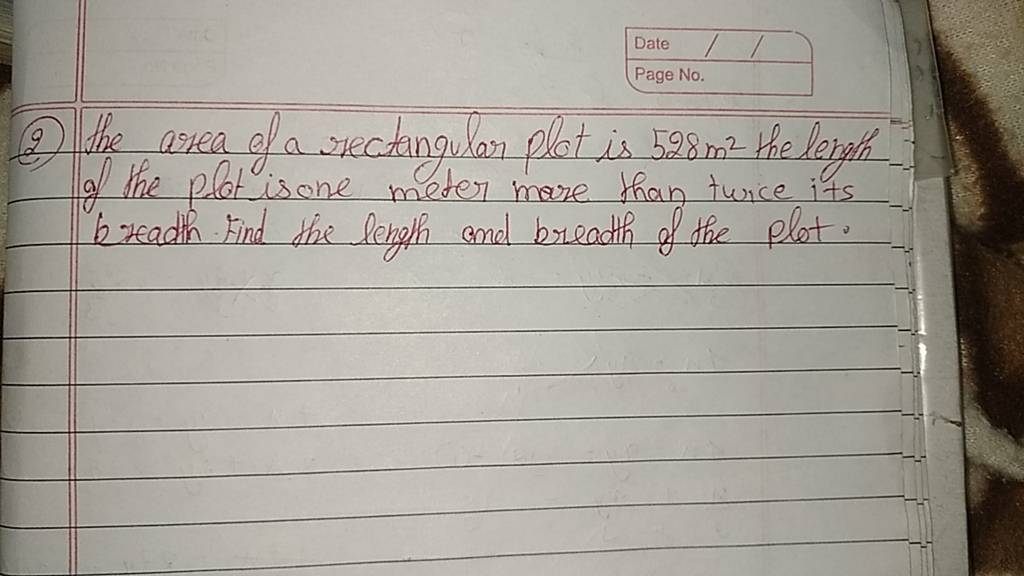 Date / /
Page No.
② the area of a rectangular plot is 528m² the length
of the plot is one meter more than twice its
breadth. Find the length and breadth of the plot.